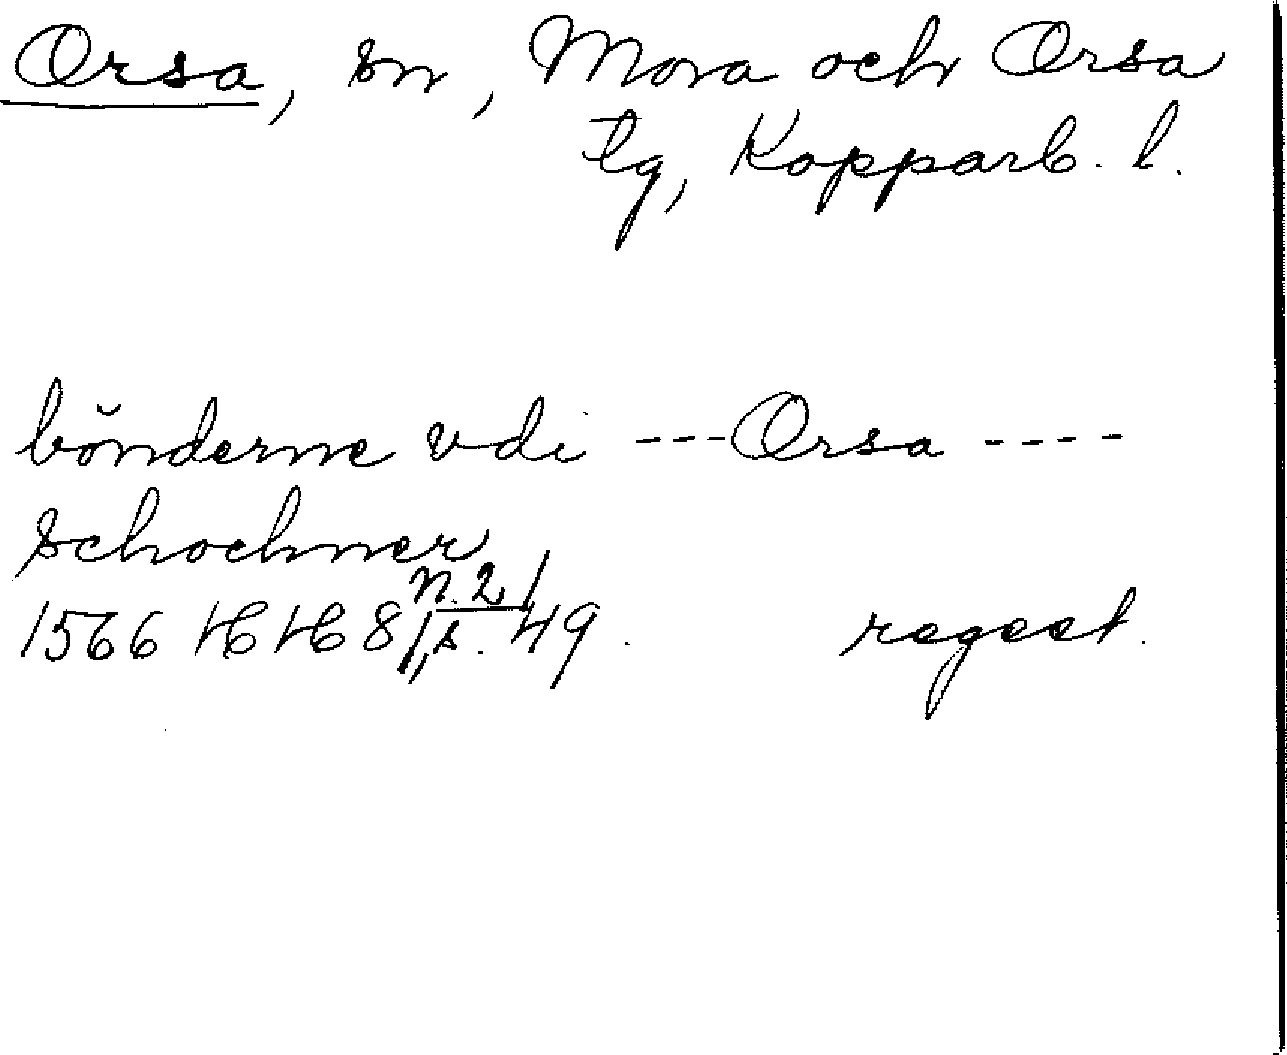 Orsa, sn, Mora och Orsa
tg, Kopparb. l.
bŏnderne vdi ---Orsa ----
schochner
1566 HH 8 n. 2, s. 49. regest.